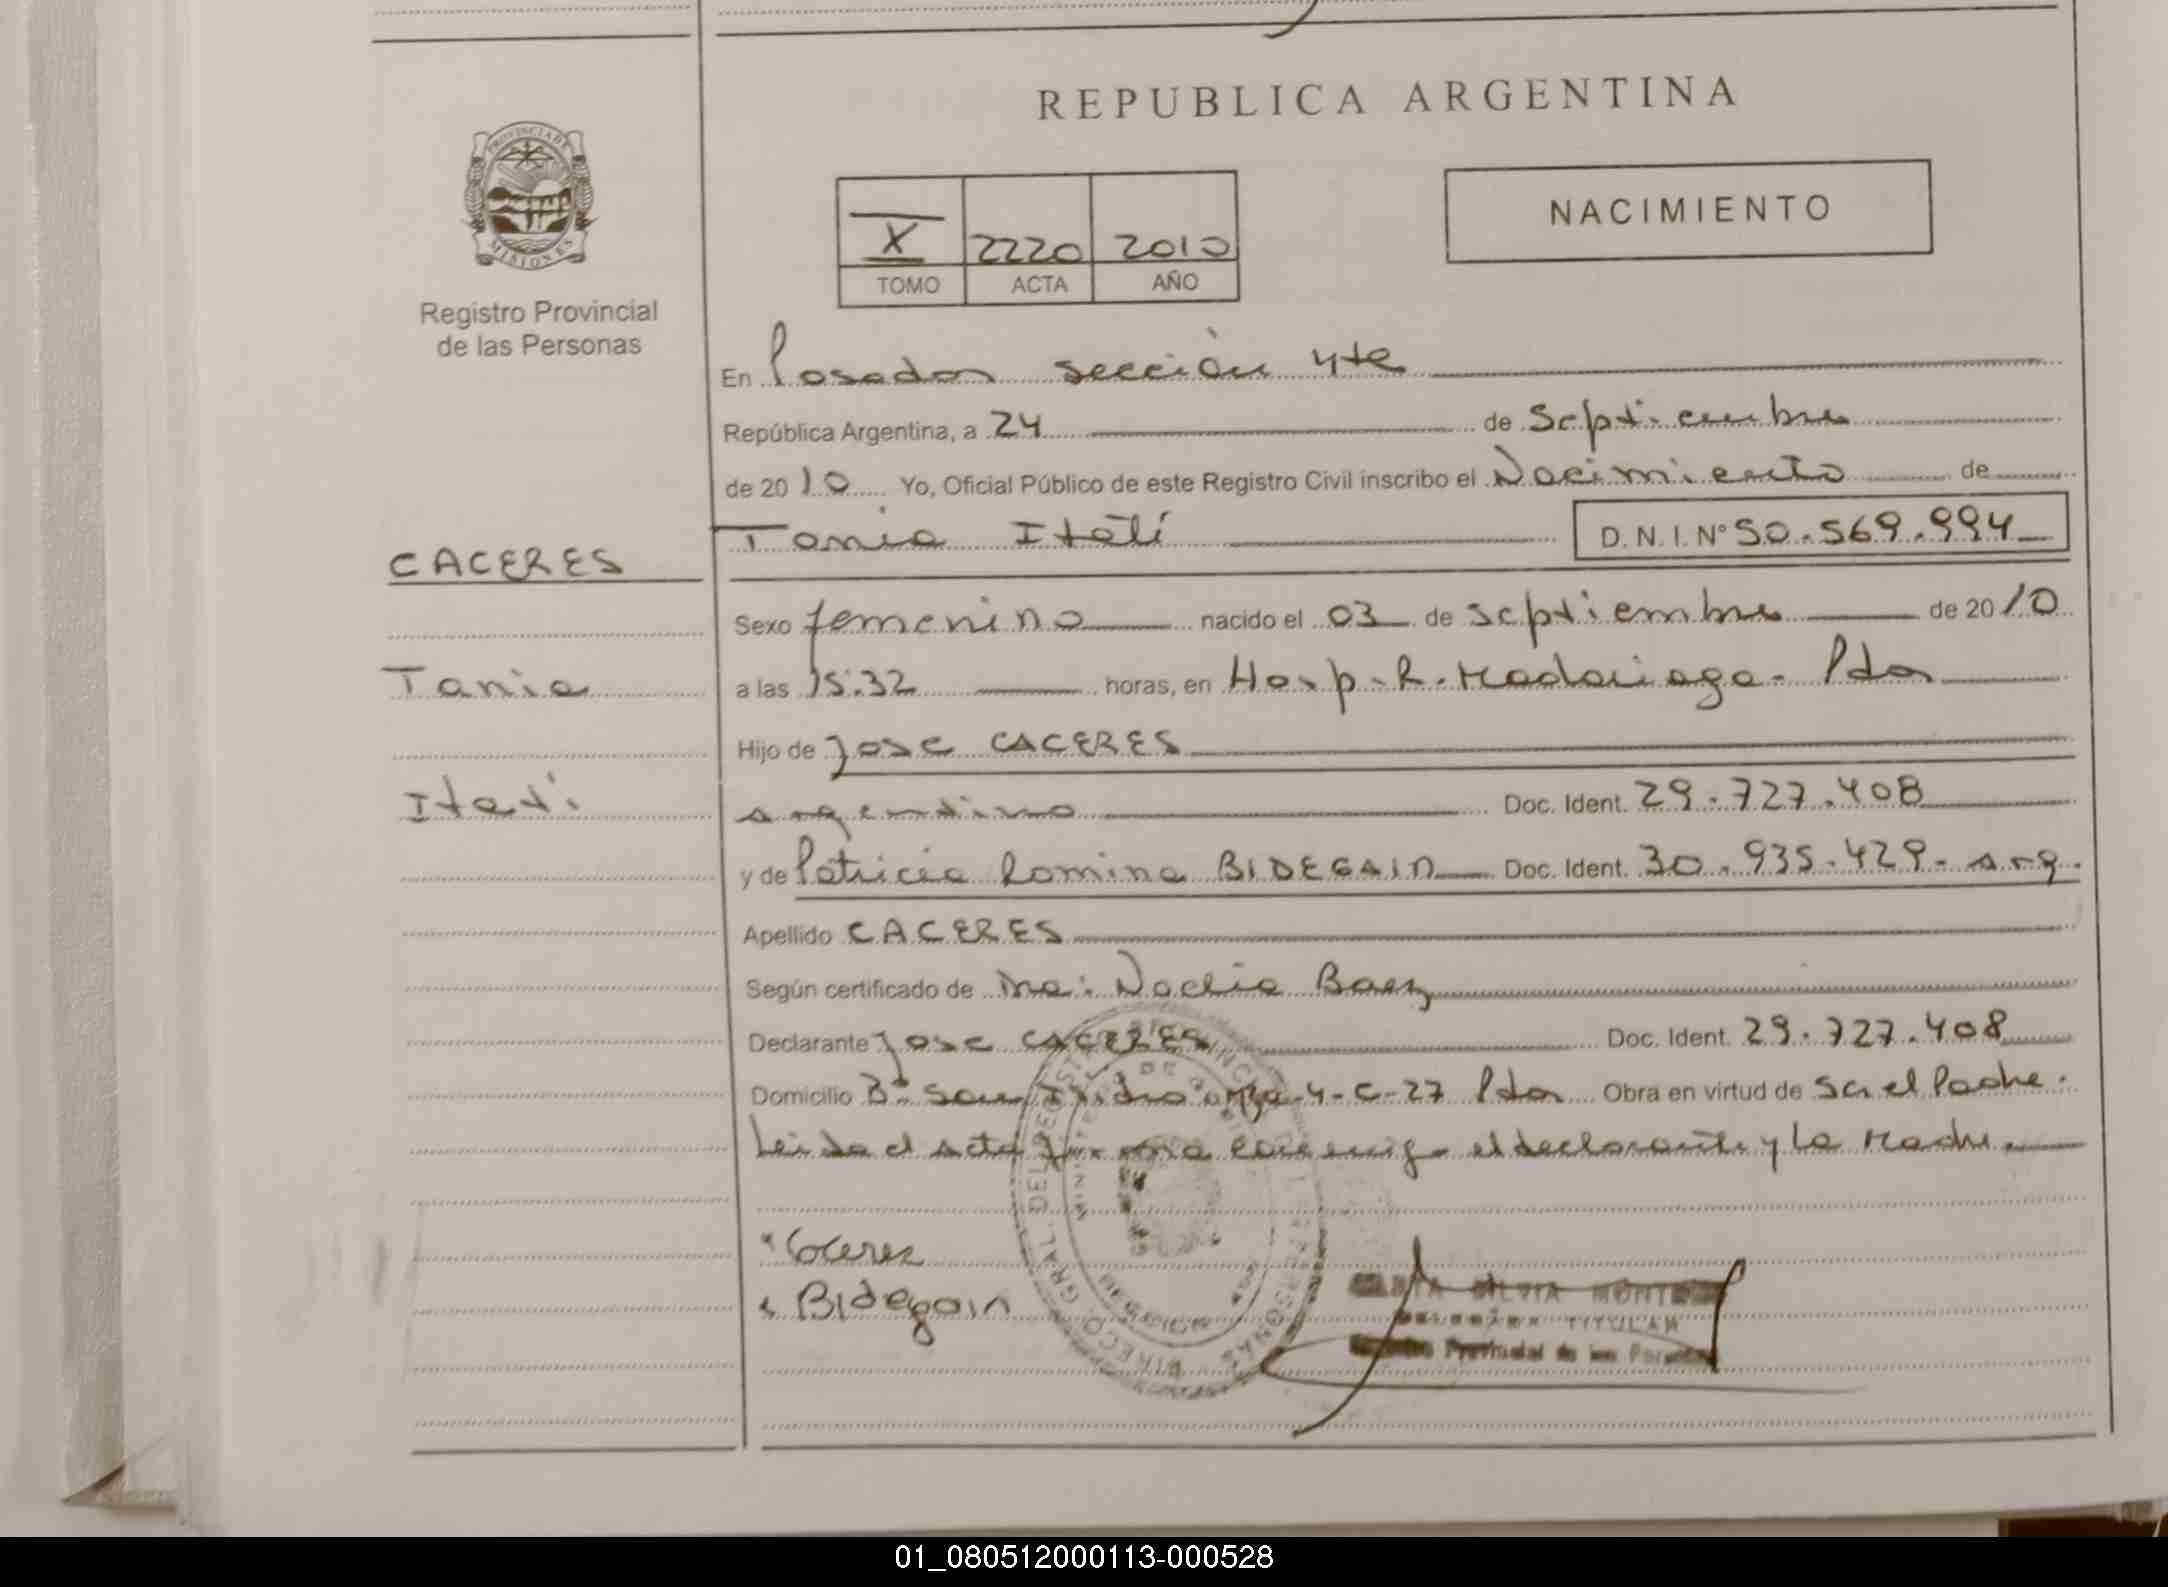 REPUBLICA ARGENTINA
PROVINCIA DE
MISIONES
Registro Provincial
de las Personas
X 2220 2010
TOMO ACTA AÑO
NACIMIENTO
En Posadas sección 4ta
República Argentina, a 24 de Septiembre
de 2010 Yo, Oficial Público de este Registro Civil inscribo el Nacimiento de
CACERES
Tania Itatí D.N.I. Nº 50.569.994
Sexo femenino nacido el 03 de septiembre de 2010
Tania
a las 15:32 horas, en Hosp. R. Madariaga - Pdas
Hijo de Jose CACERES
Itatí
argentino Doc. Ident. 29.727.408
y de Patricia Romina BIDEGAIN Doc. Ident. 30.935.429 - arg.
Apellido CACERES
Según certificado de Noelia Baez
Declarante Jose CACERES Doc. Ident. 29.727.408
Domicilio Bº San Isidro mza-4-C-27 Pdas Obra en virtud de ser el Padre.
Leida el acta firma conmigo el declarante y la Madre.
Caceres
Bidegain
SILVIA
TITULAR
Provincial de las Personas
01_080512000113-000528